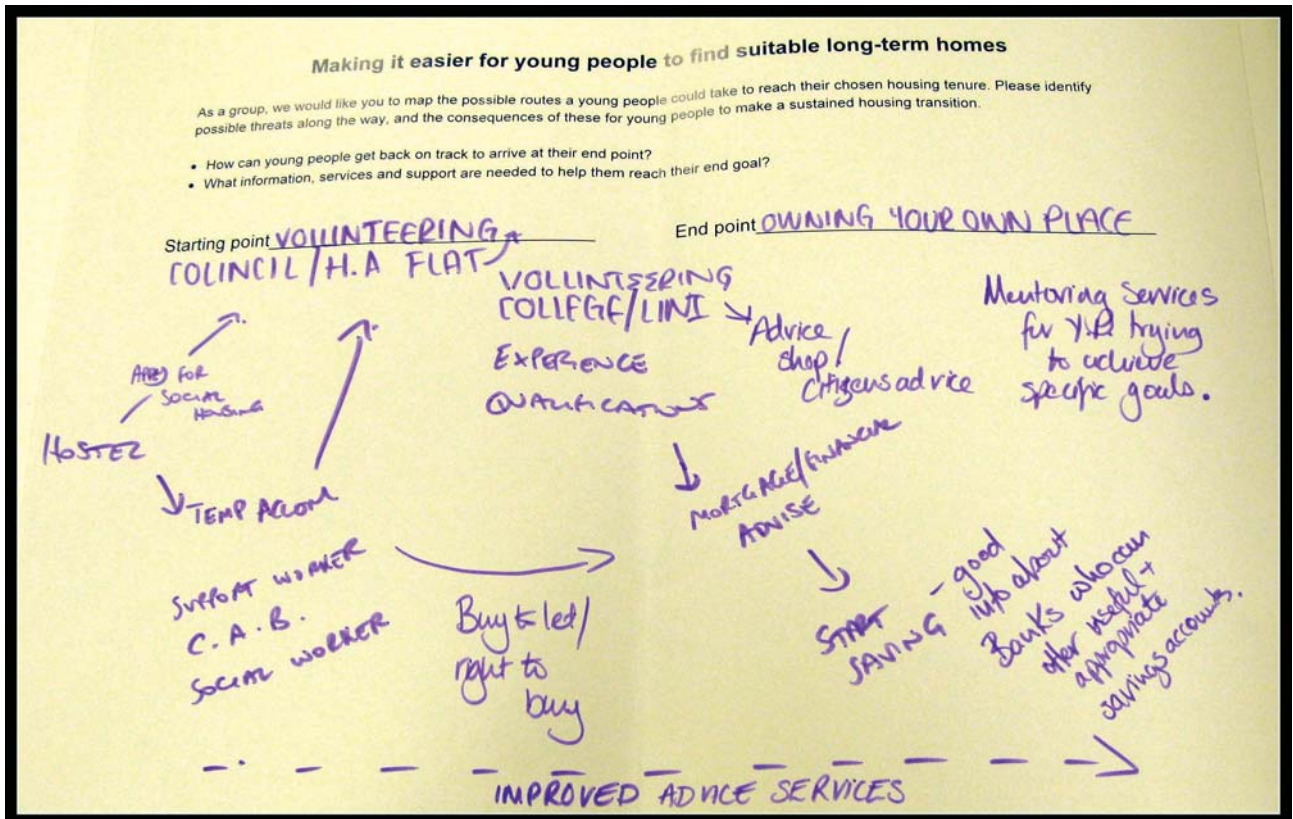 Making it easier for young people to find suitable long-term homes
As a group, we would like you to map the possible routes a young people could take to reach their chosen housing tenure. Please identify
possible threats along the way, and the consequences of these for young people to make a sustained housing transition.
• How can young people get back on track to arrive at their end point?
• What information, services and support are needed to help them reach their end goal?
Starting point VOLUNTEERING
COUNCIL/H.A FLAT
End point OWNING YOUR OWN PLACE
VOLUNTEERING
COLLEGE/UNI
EXPERIENCE
QUALIFICATIONS
Advice
shop/
Citizens advice
Mentoring Services
for Y.P. trying
to achieve
specific goals.
FOR
SOCIAL
HOUSING
HOSTEL
TEMP ACCOM
SUPPORT WORKER
C.A.B.
SOCIAL WORKER
Buy to let/
right to
buy
MORTGAGE/FINANCIAL
ADVISE
START
SAVING
– good
info about
Banks who can
offer useful +
appropriate
savings accounts.
IMPROVED ADVICE SERVICES